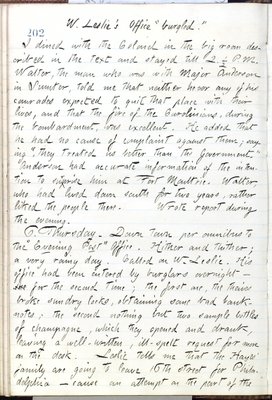 W. Leslie's Office "burgled."
202
I dined with the Colonel in the big room des-
cribed in the text and stayed till 2 ½ P.M.
Walter, the man who was with Major Anderson
in Sumter, told me that neither he nor any of his
comrades expected to quit that place with their
lives, and that the fire of the Carolinians, during
the bombardment, was excellent. He added that
he had no cause of complaint against them; say-
ing "they treated us better than the Government."
Anderson had accurate information of the inten-
tion to him at Fort Moultrie. Walter,
who had lived down south for two years, rather
liked the people there. Wrote report during
the evening.
6. Thursday. Down town per omnibus to
the "Evening Post" Office. Hither and thither;
a very rainy day. Called on W. Leslie. His
office had been entered by burglars overnight —
for the second time; the first one, the thieves
broke sundry locks, obtaining some bad bank-
notes; the second nothing but two sample bottles
of champagne, which they opened and drank,
leaving a well-written, ill-spelt request for more
on the desk. Leslie tells me that the Hayes'
family are going to leave 16th street for Phila-
delphia — cause an attempt on the part of the